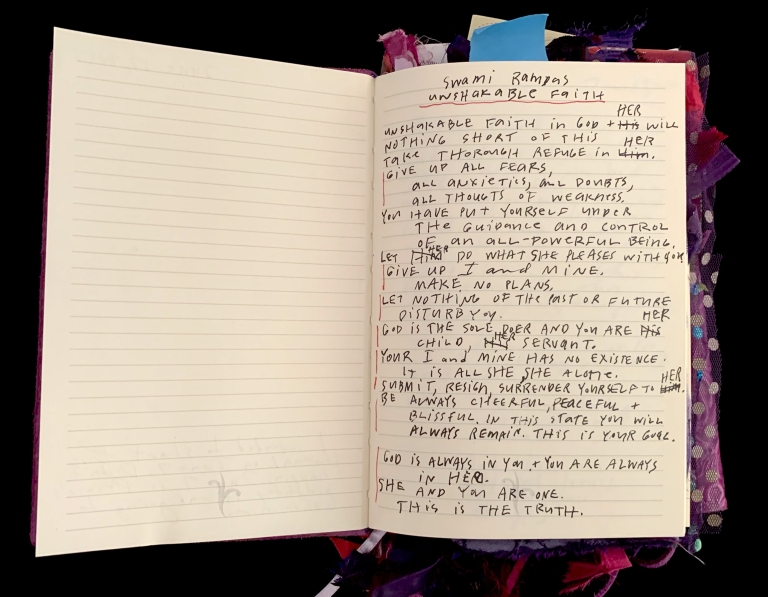 Swami Rampas
UNSHAKABLE FAITH
HER
UNSHAKABLE FAITH in GOD + His WILL
NOTHING SHORT OF THIS HER
TAKE THOROUGH REFUGE in Him.
GIVE UP ALL FEARS,
ALL ANXIETIES, ALL DOUBTS,
ALL THOUGTS OF WEAKNESS.
YOU HAVE PUT YOURSELF UNDER
THE GUIDANCE AND CONTROL
OF an ALL-POWERFUL BEING.
LET Him HER DO WHAT SHE PLEASES WITH YOU
GIVE UP I and MINE.
MAKE NO PLANS.
LET NOTHING OF THE PAST OR FUTURE
DISTURB YOU. HER
GOD IS THE SOLE DOER AND YOU ARE His
CHILD, HER SERVANT.
YOUR I and MINE HAS NO EXISTENCE.
IT IS ALL SHE, SHE ALONE. HER
SUBMIT, RESIGN, SURRENDER YOURSELF TO Him.
BE ALWAYS CHEERFUL, PEACEFUL +
BLISSFUL. IN THIS STATE YOU WILL
ALWAYS REMAIN. THIS IS YOUR GOAL.
GOD IS ALWAYS IN YOU + YOU ARE ALWAYS
IN HER.
SHE AND YOU ARE ONE.
THIS IS THE TRUTH.